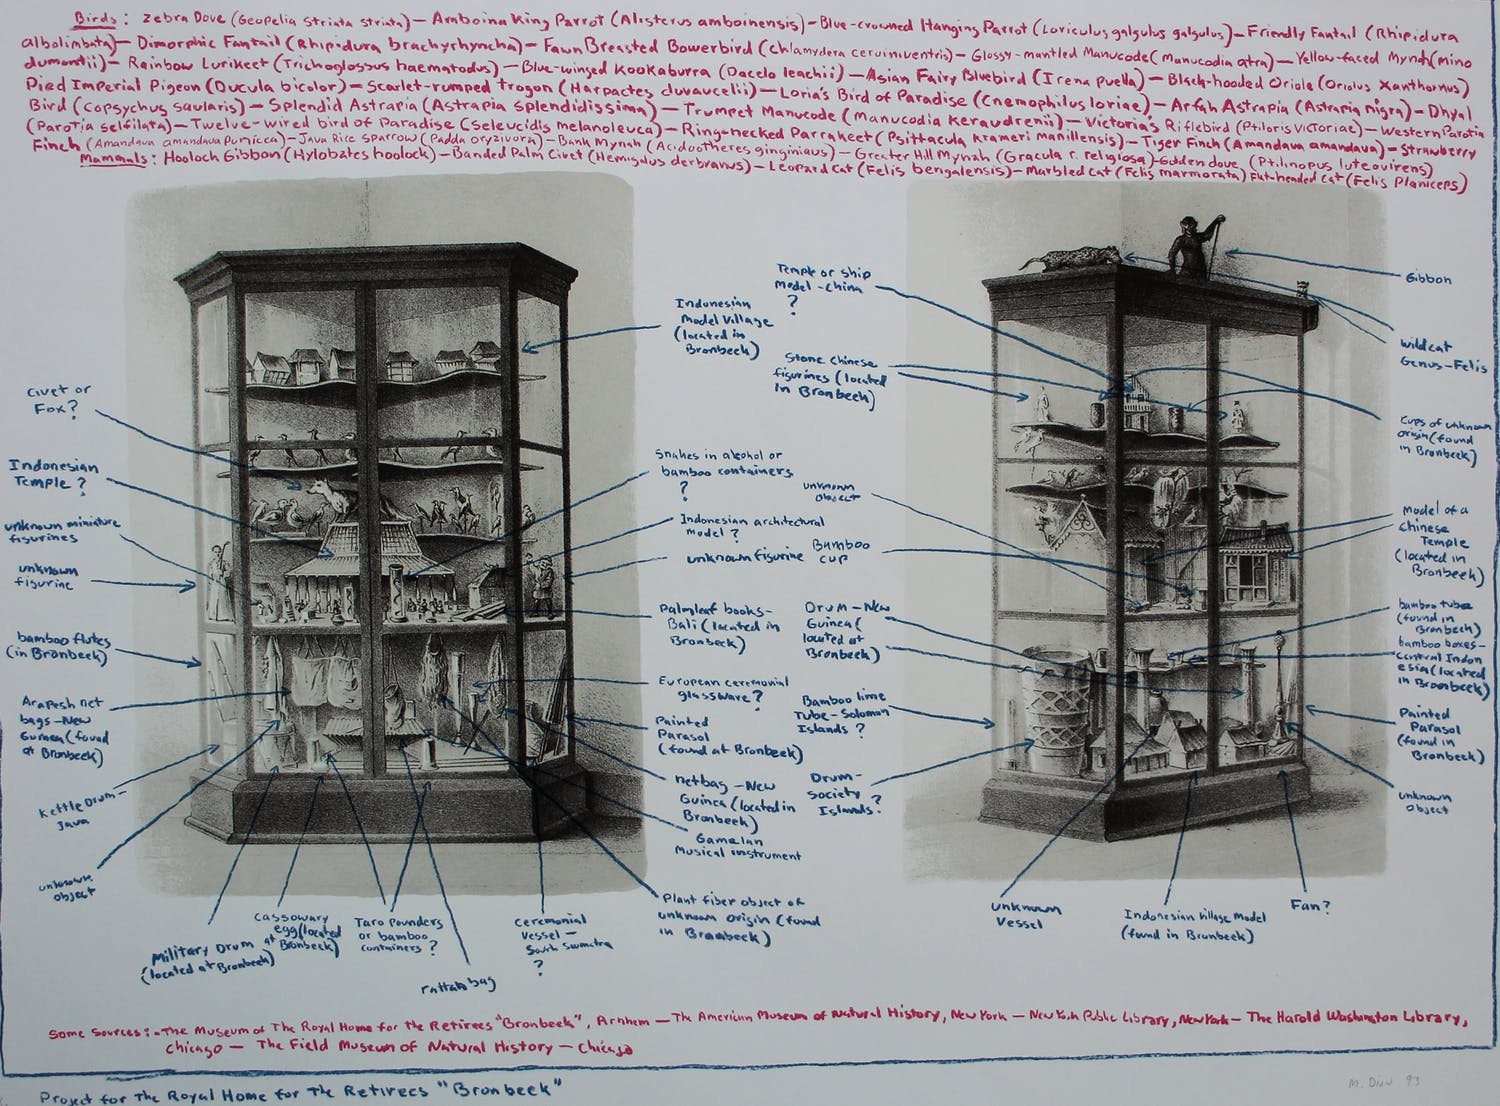 Birds: Zebra Dove (Geopelia Striata striata) — Amboina King Parrot (Alisterus amboinensis) — Blue-crowned Hanging Parrot (Loriculus galgulus galgulus) — Friendly Fantail (Rhipidura
albolimbata) — Dimorphic Fantail (Rhipidura brachyrhyncha) — Fawn Breasted Bowerbird (Chlamydera cerviniventris) — Glossy-mantled Manucode (Manucodia atra) — Yellow-faced Mynah (mino
dumontii) — Rainbow Lurikeet (Trichoglossus haematodus) — Blue-winged Kookaburra (Dacelo leachii) — Asian Fairy Bluebird (Irena puella) — Black-hooded Oriole (Oriolus Xanthornus)
Pied Imperial Pigeon (Ducula bicolor) — Scarlet-rumped Trogon (Harpactes duvaucelii) — Loria's Bird of Paradise (Cnemophilus loriae) — Arfak Astrapia (Astrapia nigra) — Dhyal
Bird (Copsychus saularis) — Splendid Astrapia (Astrapia splendidissima) — Trumpet Manucode (Manucodia Keraudrenii) — Victoria's Riflebird (Ptiloris victoriae) — Western Parotia
(Parotia selfilata) — Twelve-wired bird of Paradise (Seleucidis melanoleuca) — Ring-necked Parrakeet (Psittacula Krameri manillensis) — Tiger Finch (Amandava amandava) — Strawberry
Finch (Amandava amandava punicca) — Java Rice Sparrow (Padda oryzivora) — Bank Mynah (Acidootheres ginginiaus) — Greater Hill Mynah (Gracula r. religiosa) — Golden dove (Ptilinopus luteovirens)
Mammals: Hoolock Gibbon (Hylobates hoolock) — Banded Palm Civet (Hemigalus derbyanus) — Leopard Cat (Felis bengalensis) — Marbled Cat (Felis marmorata) Flat-headed Cat (Felis Planiceps)
Civet or
Fox?
Indonesian
Temple?
unknown miniature
figurines
unknown
figurine
bamboo flutes
(in Bronbeek)
Arapesh net
bags — New
Guinea (found
at Bronbeek)
Kettle Drum —
Java
unknown
object
Military Drum
(located at Bronbeek)
Cassowary
egg (located
at Bronbeek)
Taro Pounders
or bamboo
containers?
rattan bag
Ceremonial
Vessel —
South Sumatra
?
Indonesian
Model Village
(located in
Bronbeek)
Snakes in alcohol or
bamboo containers
?
Indonesian architectural
model?
unknown figurine
Palmleaf books —
Bali (located in
Bronbeek)
European ceremonial
glassware?
Painted
Parasol
(found at Bronbeek)
netbag — New
Guinea (located in
Bronbeek)
Gamelan
Musical instrument
Plant fiber object of
unknown origin (found
in Bronbeek)
Temple or ship
Model — China
?
Stone Chinese
figurines (located
in Bronbeek)
unknown
object
Bamboo
cup
Drum — New
Guinea (
located at
Bronbeek)
Bamboo lime
Tube — Solomon
Islands?
Drum —
Society
Islands?
unknown
Vessel
Indonesian Village Model
(found in Bronbeek)
Fan?
Gibbon
Wildcat
Genus — Felis
Cups of unknown
origin (found
in Bronbeek)
Model of a
Chinese
Temple
(located in
Bronbeek)
bamboo tube
(found in
Bronbeek)
bamboo boxes —
Central Indon
esia (located
in Bronbeek)
Painted
Parasol
(found in
Bronbeek)
unknown
object
Some Sources: - The Museum of The Royal Home for the Retirees "Bronbeek", Arnhem — The American Museum of Natural History, New York — New York Public Library, New York — The Harold Washington Library,
Chicago — The Field Museum of Natural History — Chicago
Project for The Royal Home for The Retirees "Bronbeek"
M. Dion 93